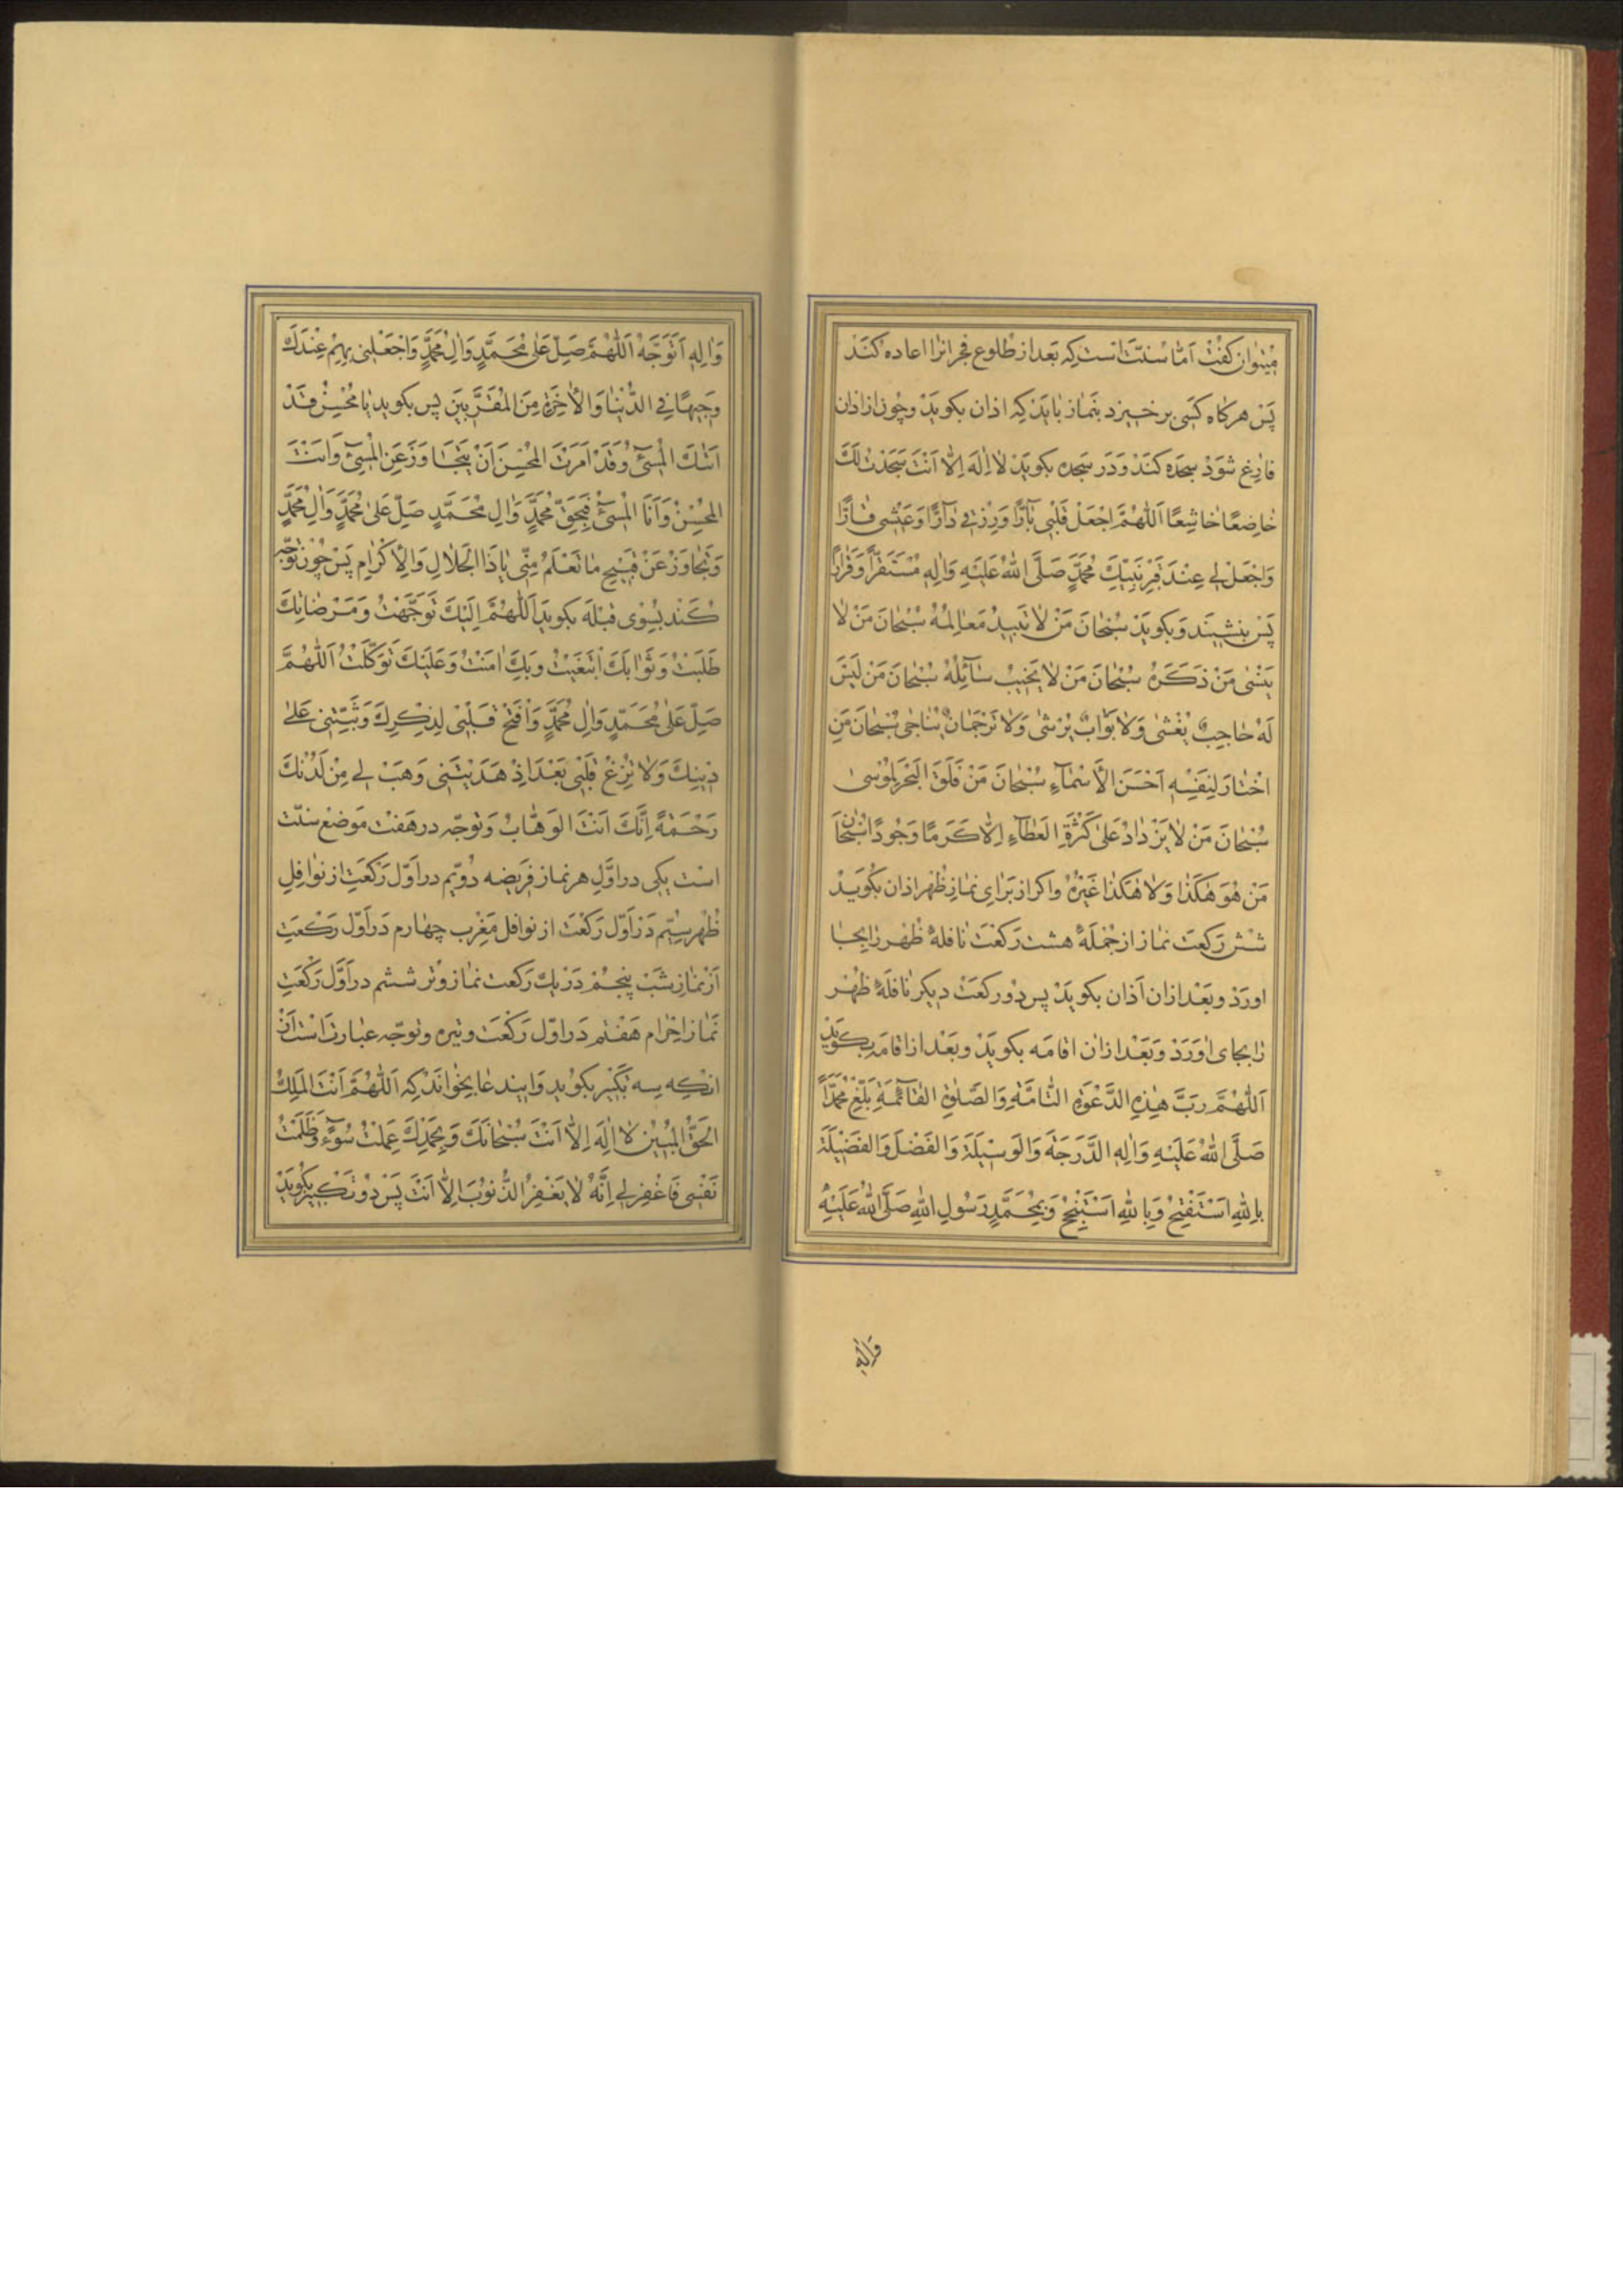 میتوان کفت اَمّا سُنّتَ انست که بَعد از طلوع فجر انرا اعاده کنَد
پَس هرکاه کسَی برخیزد بنَماز بایَد که اذان بکویَد وچون از اذان
فارغ شوَد سجده کنَد وَدَر سجده بکویَد لا اِلهَ اِلّا اَنْتَ سَجَدْتُ لَكَ
خاضِعًا خاشِعًا اَللّهُمَّ اجْعَلْ قَلْبی بٰارًّا وَرِزْقی دٰارًّا وَعَیْشی قٰارًّا
وَاجْعَلْ لی عِنْدَ قَبْرِ نَبِیِّكَ مُحَمَّدٍ صَلَّی اللهُ عَلَیْهِ وَالِهِ مُسْتَقَرًّا وَقَرٰارًا
پَس بنشیند وَبکویَد سُبْحٰانَ مَنْ لٰا تَبیدُ مَعٰالِمُهُ سُبْحٰانَ مَنْ لٰا
یَنْسٰی مَنْ ذَکَرَهُ سُبْحٰانَ مَنْ لٰا یَخیبُ سٰآئِلُهُ سُبْحٰانَ مَنْ لَیْسَ
لَهُ حٰاجِبٌ یُغْشٰی وَلٰا بَوّٰابٌ یُرْشٰی وَلٰا تَرْجُمٰانٌ یُنٰاجٰی سُبْحٰانَ مَنِ
اخْتٰارَ لِنَفْسِهِ اَحْسَنَ الْاَسْمٰآءِ سُبْحٰانَ مَنْ فَلَقَ الْبَحْرَ لِمُوسٰی
سُبْحٰانَ مَنْ لٰا یَزْدٰادُ عَلٰی کَثْرَةِ الْعَطٰآءِ اِلّٰا کَرَمًا وَجُودًا سُبْحٰانَ
مَنْ هُوَ هٰکَذٰا وَلٰا هٰکَذٰا غَیْرُهُ واکر از بَرَایِ نمازِ ظُهْر اذان بکُویَد
شش رَکعَت نماز از جُمْلَهٔ هشت رَکعَت نافلهٔ ظُهْر رٰا بجٰا
اورَد وبَعْد ازان اَذان بکویَد پس دو رکعَت دیکر نٰافلَهٔ ظهْر
رٰا بجای اورَد وَبَعْد ازان اقامَه بکویَد وبَعْد از اقامَه بکویَد
اَللّهُمَّ رَبَّ هٰذِهِ الدَّعْوَةِ التّٰامَّةِ وَالصَّلٰوةِ الْقٰآئِمَةِ بَلِّغْ مُحَمَّدًا
صَلَّی اللهُ عَلَیْهِ وَاٰلِهِ الدَّرَجَةَ وَالْوَسیلَةَ وَالْفَضْلَ وَالْفَضیلَةَ
بِاللهِ اَسْتَفْتِحُ وَبِاللهِ اَسْتَنْجِحُ وَبِمُحَمَّدٍ رَسُولِ اللهِ صَلَّی اللهُ عَلَیْهِ
وَاٰلِهِ
وَاٰلِهِ اَتَوَجَّهُ اَللّهُمَّ صَلِّ عَلٰی مُحَمَّدٍ وَاٰلِ مُحَمَّدٍ وَاجْعَلْنی بِهِمْ عِنْدَكَ
وَجیهًا فِی الدُّنْیٰا وَالْاٰخِرَةِ مِنَ الْمُقَرَّبینَ پس بکوید یٰا مُحْسِنُ قَدْ
اَتٰاكَ الْمُسیٓءُ وَقَدْ اَمَرْتَ الْمُحْسِنَ اَنْ یَتَجٰاوَزَ عَنِ الْمُسیٓءِ وَاَنْتَ
الْمُحْسِنُ وَاَنَا الْمُسیٓءُ فَبِحَقِّ مُحَمَّدٍ وَاٰلِ مُحَمَّدٍ صَلِّ عَلٰی مُحَمَّدٍ وَاٰلِ مُحَمَّدٍ
وَتَجٰاوَزْ عَنْ قَبیحِ مٰا تَعْلَمُ مِنّی یٰا ذَا الْجَلٰالِ وَالْاِکْرٰامِ پَس چُون توجّه
کنَد بسُوی قبْلَه بکویَد اَللّهُمَّ اِلَیْكَ تَوَجَّهْتُ وَمَرْضٰاتَكَ
طَلَبْتُ وَثَوٰابَكَ ابْتَغَیْتُ وَبِكَ اٰمَنْتُ وَعَلَیْكَ تَوَکَّلْتُ اَللّهُمَّ
صَلِّ عَلٰی مُحَمَّدٍ وَاٰلِ مُحَمَّدٍ وَافْتَحْ قَلْبی لِذِکْرِكَ وَثَبِّتْنی عَلٰی
دینِكَ وَلٰا تُزِغْ قَلْبی بَعْدَ اِذْ هَدَیْتَنی وَهَبْ لی مِنْ لَدُنْكَ
رَحْمَةً اِنَّكَ اَنْتَ الْوَهّٰابُ وَتوجّه در هَفت مَوضع سنّت
است یکی در اوّلِ هر نماز فَریضه دُویّم در اَوّل رَکعَت از نوافِلِ
ظُهر سیّم دَر اَوّل رَکعَت از نوافل مَغْرب چهارم دَر اَوّل رَکعَت
از نمازِ شَب پنجم دَر یك رَکعت نماز وتر ششم در اَوَّل رَکعَت
نمَاز احْرام هَفتم دَر اوّل رَکعَت وتیره وتوجّه عبارت اَست از
انکه سه تکبیر بکوید وَاینْدعا بخوانَد که اَللّهُمَّ اَنْتَ الْمَلِكُ
الْحَقُّ الْمُبینُ لٰا اِلٰهَ اِلّٰا اَنْتَ سُبْحٰانَكَ وَبِحَمْدِكَ عَمِلْتُ سُوٓءً وَظَلَمْتُ
نَفْسی فَاغْفِرْ لی اِنَّهُ لٰا یَغْفِرُ الذُّنُوبَ اِلّٰا اَنْتَ پَس دُو تکبیر بکویَد